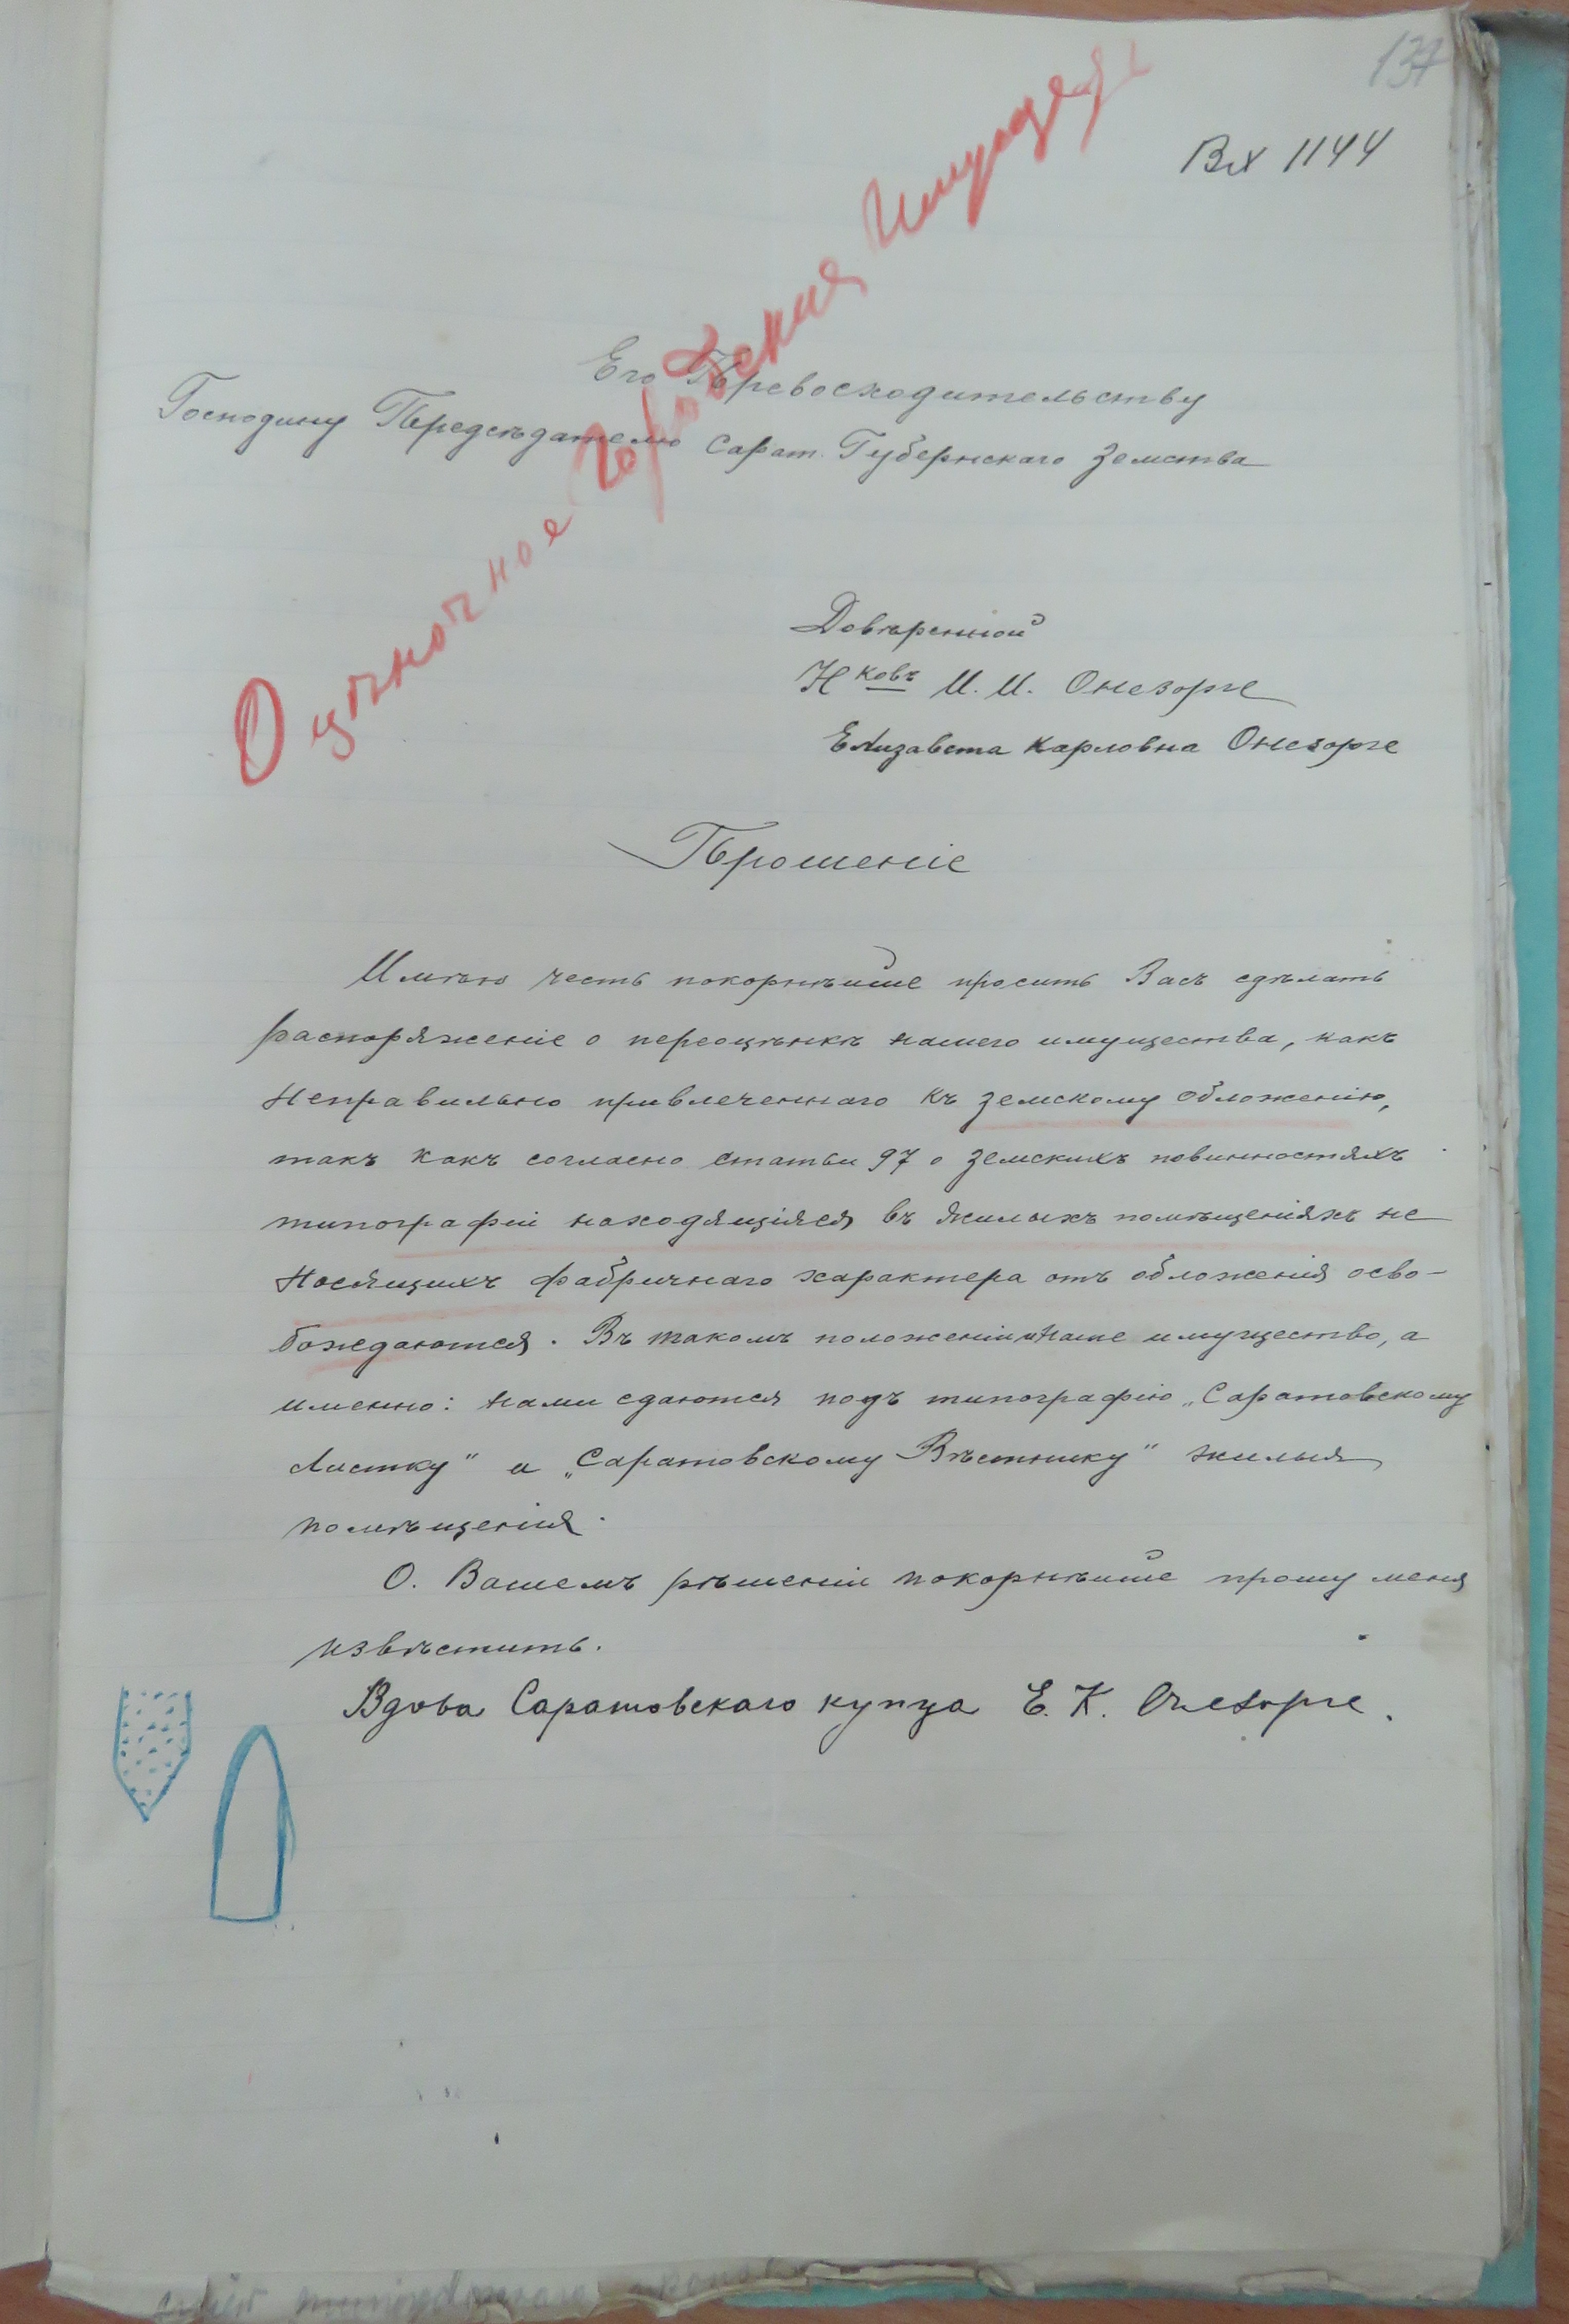 137
Вх 1144
Оцѣночное Городскія Имущест
Его Превосходительству
Господину Предсѣдателю Сарат. Губернскаго Земства
Довѣренной
Н ковъ И. И. Онезорге
Елизавета Карловна Онезорге
Прошеніе
Имѣю честь покорнѣйше просить Васъ сдѣлать
распоряженіе о переоцѣнкѣ нашего имущества, какъ
неправильно привлеченнаго къ земскому обложенію,
такъ какъ согласно статьи 97 о земскихъ повинностяхъ
типографіи находящіяся въ жилыхъ помѣщеніяхъ не
носящихъ фабричнаго характера отъ обложенія осво-
бождаются. Въ такомъ положеніи и наше имущество, а
именно: нами сдаются подъ типографію „Саратовскому
Листку" и „Саратовскому Вѣстнику" жилыя
помѣщенія.
О. Вашемъ рѣшеніи покорнѣйше прошу меня
извѣстить.
Вдова Саратовскаго купца Е. К. Онезорге.